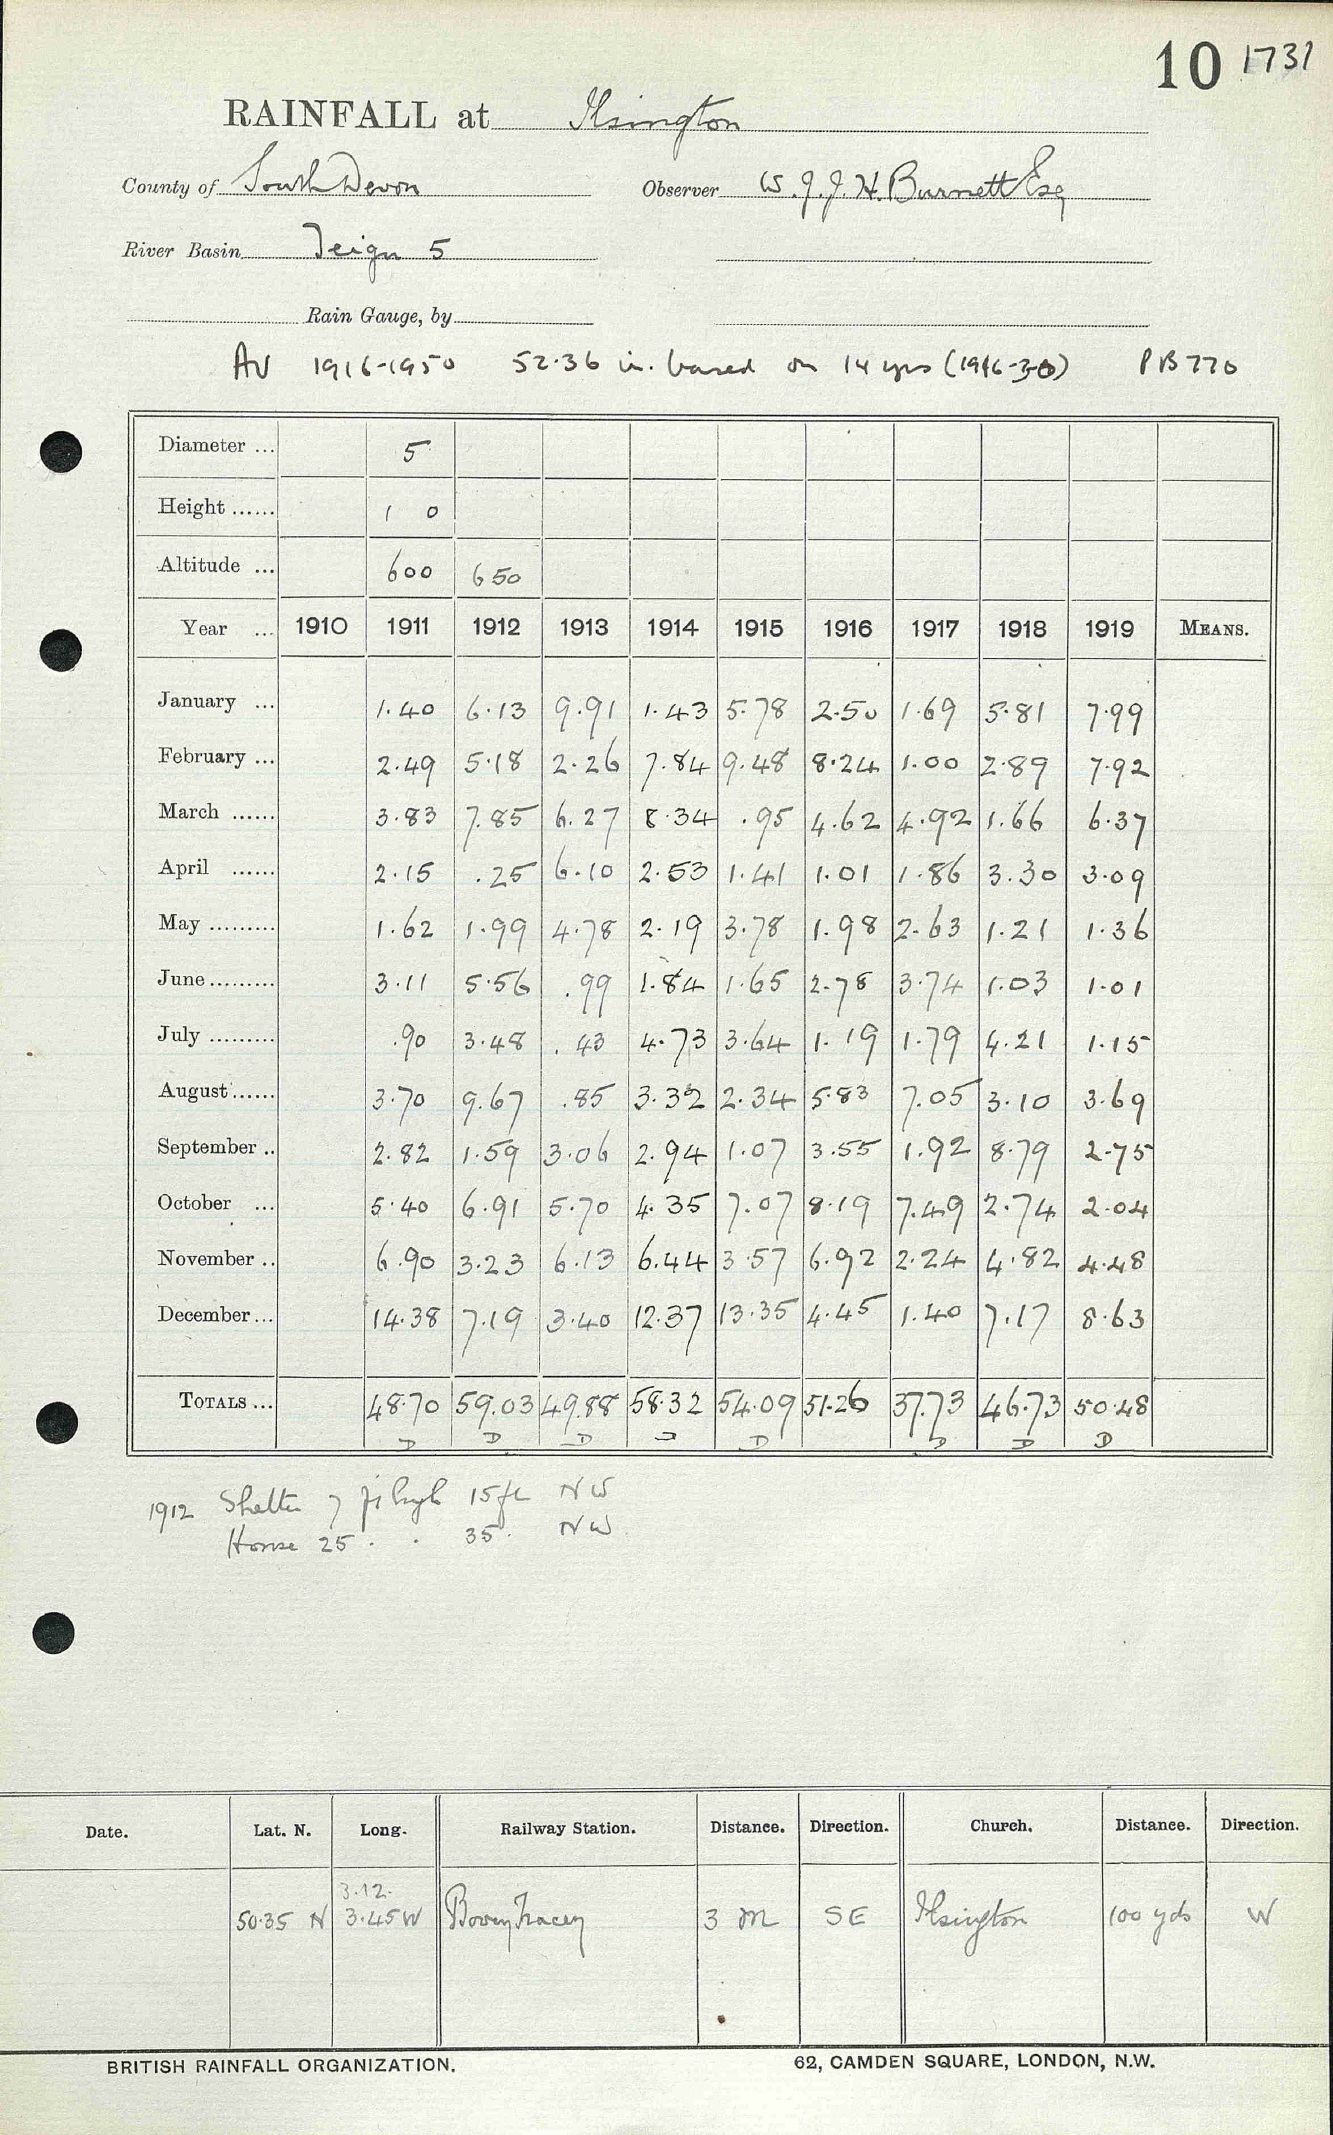 10 1731
RAINFALL at Ilsington
County of South Devon Observer W. J. J. H. Burnett Esq
River Basin Teign 5
Rain Gauge, by
Av 1916-1950 52.36 in. based on 14 yrs (1916-30) PB 770
Diameter ... 5
Height ...... 1 0
Altitude ... 600 650
Year ... 1910 1911 1912 1913 1914 1915 1916 1917 1918 1919 MEANS.
January ... 1.40 6.13 9.91 1.43 5.78 2.50 1.69 5.81 7.99
February ... 2.49 5.18 2.26 7.84 9.48 8.24 1.00 2.89 7.92
March ...... 3.83 7.85 6.27 8.34 .95 4.62 4.92 1.66 6.37
April ...... 2.15 .25 6.10 2.53 1.41 1.01 1.86 3.30 3.09
May ......... 1.62 1.99 4.78 2.19 3.78 1.98 2.63 1.21 1.36
June ......... 3.11 5.56 .99 1.84 1.65 2.78 3.74 1.03 1.01
July ......... .90 3.48 .43 4.73 3.64 1.19 1.79 4.21 1.15
August ...... 3.70 9.67 .85 3.32 2.34 5.83 7.05 3.10 3.69
September .. 2.82 1.59 3.06 2.94 1.07 3.55 1.92 8.79 2.75
October ... 5.40 6.91 5.70 4.35 7.07 8.19 7.49 2.74 2.04
November .. 6.90 3.23 6.13 6.44 3.57 6.92 2.24 4.82 4.48
December ... 14.38 7.19 3.40 12.37 13.35 4.45 1.40 7.17 8.63
TOTALS ... 48.70 59.03 49.88 58.32 54.09 51.26 37.73 46.73 50.48
D D D D D D D D
1912 Shelter 7 ft high 15 ft NW
House 25 . . 35 . NW
Date. Lat. N. Long. Railway Station. Distance. Direction. Church. Distance. Direction.
3.12.
50.35 N 3.45 W Bovey Tracey 3 M SE Ilsington 100 yds W
BRITISH RAINFALL ORGANIZATION. 62, CAMDEN SQUARE, LONDON, N.W.